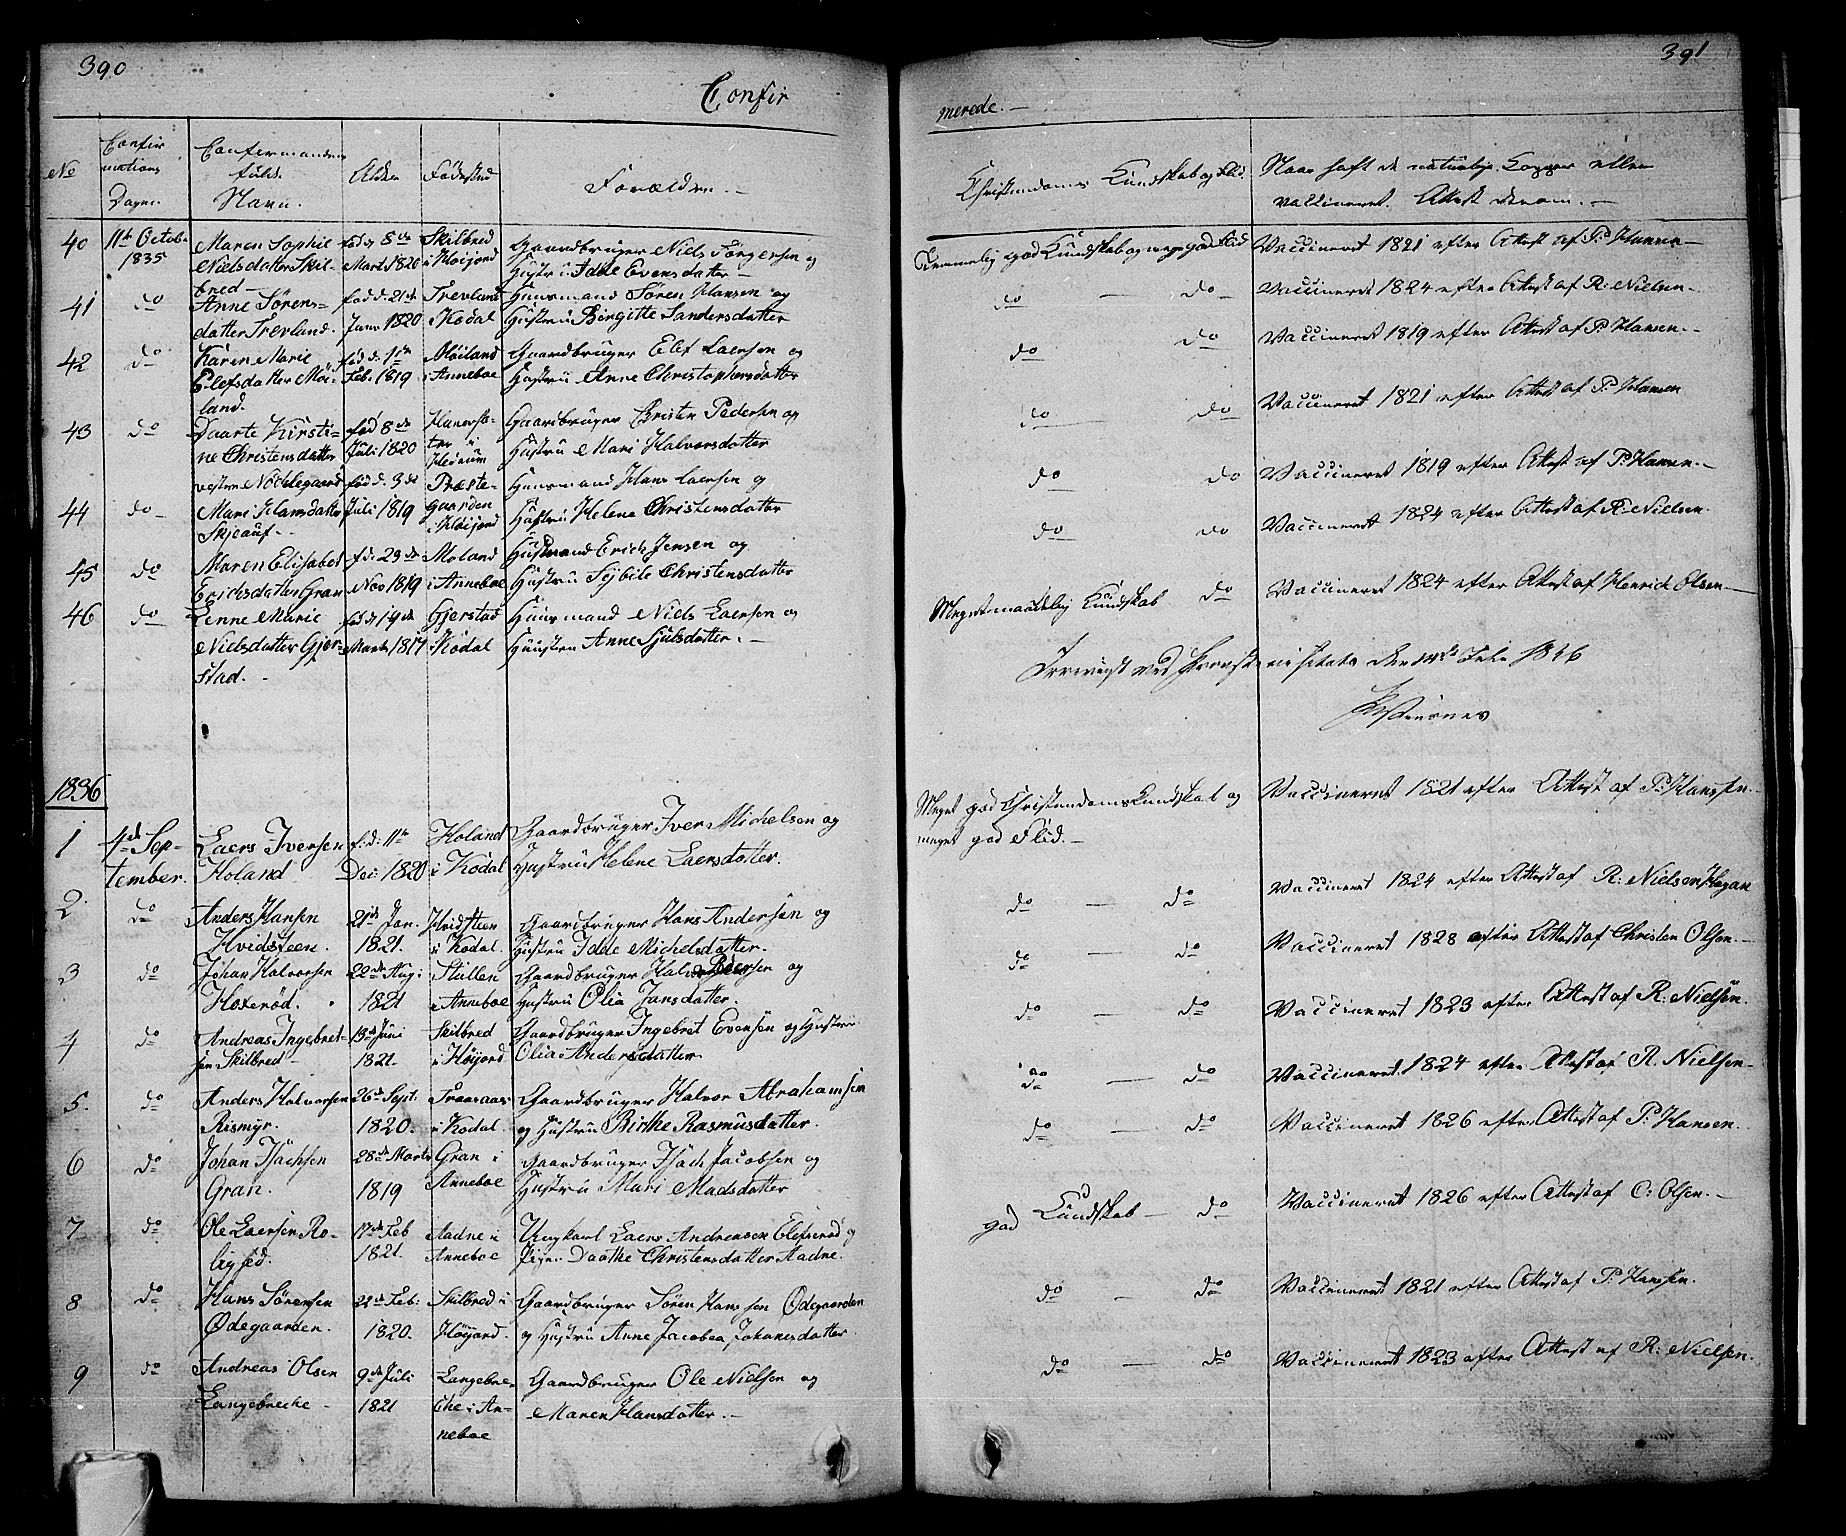 390
Confir
No
Confir
mations
Dagen.
Confirmandens
fulde
Navn.
Alder
Fødested
Forældre. —
40
11te Octob.
1835
Maren Sophie
Nielsdatter Skil-
bred —
fød d. 8de
Marts 1820
Skilbred
i Høijord
Gaardbruger Niels Jörgensen og
Hustru Idde Evensdatter —
41
do
Anne Sörens-
datter Trevland.
fød d. 21de
Janr 1820
Trevland
i Kodal
Huusmand Sören Hansen og
Hustru Birgitte Sandersdatter
42
do
Karen Marie
Elefsdatter Möi-
land.
fød d. 11te
Feb. 1819
Möiland
i Anneboe
Gaardbruger Elef Laersen og
Hustru Anne Christophersdatter
43
do
Daarte Kirsti-
ne Christensdatter
vestre Nöddegaard
fød 8de
Juli 1820
ter i
Hedrum
Gaardbruger Christen Pedersen og
Hustru Mari Halvorsdatter
44
do
Mari Hansdatter
Skjeauf. -
fød d. 3de
Juli 1819
Præste-
gaarden
i Høijord
Huusmand Hans Laersen og
Hustru Helene Christensdatter
45
do
Maren Elisabet
Erichsdatter Gran
f. d. 23de
Nov 1819
Moland
i Anneboe
Husmand Erich Jensen og
Hustru Sejbile Christensdatter
46
do
Lenne Marie
Nielsdatter Gjer-
stad. -
fød d. 19de
Marts 1817
Gjerstad
i Kodal
Huusmand Niels Laersen og
Huustru Anne Sjulsdatter. —
1836
1
4de Sep-
tember.
Laers Iversen
Holand
f. d: 11te
Dec: 1820
Holand
i Kodal
Gaardbruger Iver Michelsen og
Hustru Helene Laersdatter.
2
do
Anders Hansen
Hvidsteen.
21de Jan.
1821.
Hvidsteen
i Kodal.
Gaardbruger Hans Andersen og
Hustru Idde Michelsdatter.
3
do
Johan Halvorsen
Hoxeröd.
22de Aug:
1821
Stullen
i Anneboe
Gaardbruger Halvor Boersen og
Hustru Olia Jansdatter.
4
do
Andreas Ingebret-
sen Skilbred -
13de Juni
1821.
Skilbred
i Höijord
Gaardbruger Ingebret Evensen og Hustru
Olia Andersdatter
5.
do
Anders Halvorsen
Rismyr.
26de Sept:
1820.
Traasaas
i Kodal.
Gaardbruger Halvor Abrahamsen
og Hustru Birthe Rasmusdatter.
6
do
Johan Isachsen
Gran.
28de Marts
1819
Gran i
Anneboe
Gaardbruger Isach Jacobsen og
Hustru Mari Madsdatter
7
do
Ole Laersen Ro-
ligfed.
17de Feb
1821.
Aadne i
Anneboe
Ungkarl Laers Andreasen Elefsröd og
Pige: Daathe Christensdatter Aadne.
8
do
Hans Sörensen
Ödegaarden.
22de Feb:
1820.
Skilbred i
Höijord.
Gaardbruger Sören Hanssen Ödegaarden
og Hustru Anne Jacobea Johansdatter.
9
do
Andreas Olsen
Langebreche -
9de Juli
1821
Langebre-
che i An-
neboe
Gaardbruger Ole Nielsen og
Maren Hansdatter. —
391
merede. —
Christendoms Kundskab og Flid.
Naar haft de naturlige Kopper eller
vaccineret. Attest derom. —
Temmelig god Kundskab og meget god Flid
Vaccineret 1821 efter Attest af P. Hansen —
do — do
Vaccineret 1824 efter Attest af R: Nielsen —
do do
Vaccineret 1819 efter Attest af P. Hansen. —
do do
Vaccineret 1821 efter Attest af P. Hansen
do do
Vaccineret 1819 efter Attest af P. Hansen —
do do
Vaccineret 1824 efter Attest af R. Nielsen.
Meget maadelig Kundskab do
Vaccineret 1824 efter Attest af Henrich Olsen —
1836
Meget god Christendomskundskab og
meget god Flid. —
Vaccineret 1821 efter Attest af P. Hanssen.
do — do
Vaccineret 1824 efter Attest af R: Nielsen Hagan
do — do
Vaccineret 1828 efter Attest af Christen Olsen. —
do — do
Vaccineret 1823 efter Attest af R. Nielsen.
do — do
Vaccineret 1824 efter Attest af R. Nielsen —
do — do
Vaccineret 1826 efter Attest af P. Hansen.
god Kundskab — do
Vaccineret 1826 efter Attest af C: Olsen. —
do — do
Vaccineret 1821 efter Attest af P. Hanssen.
do — do
Vaccineret 1823 efter Attest af R: Nielsen.